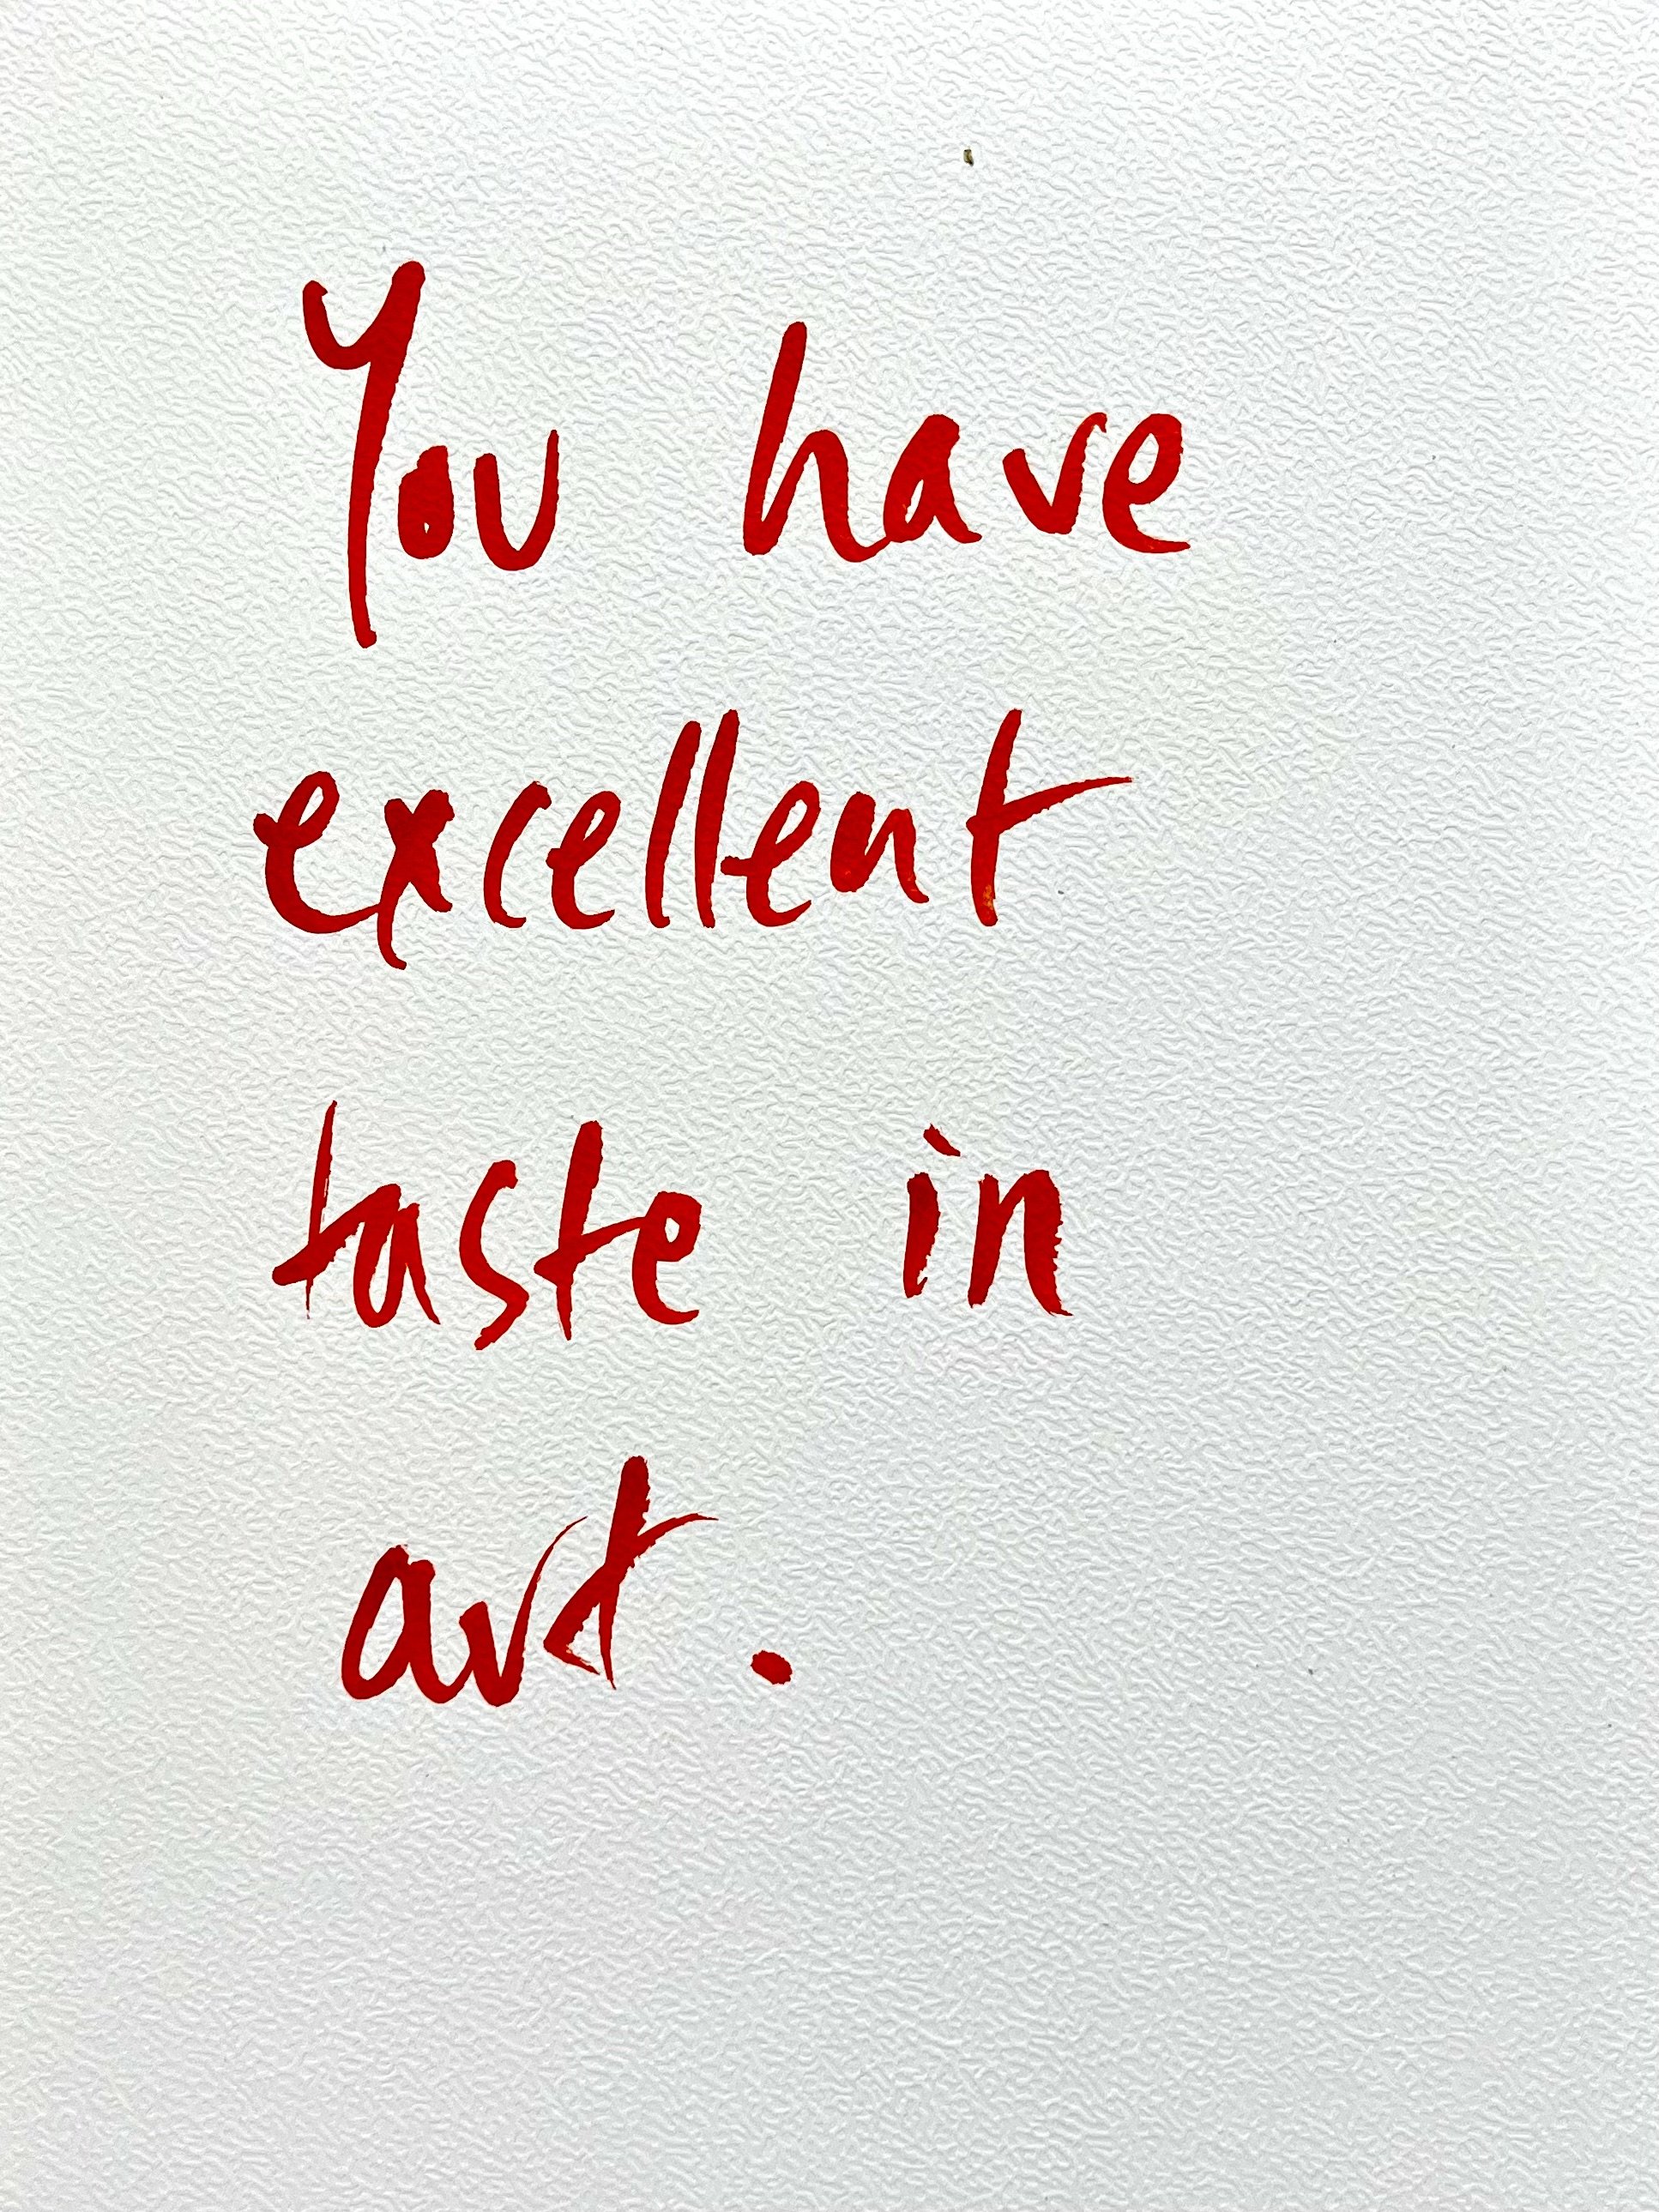 You have
excellent
taste in
art.